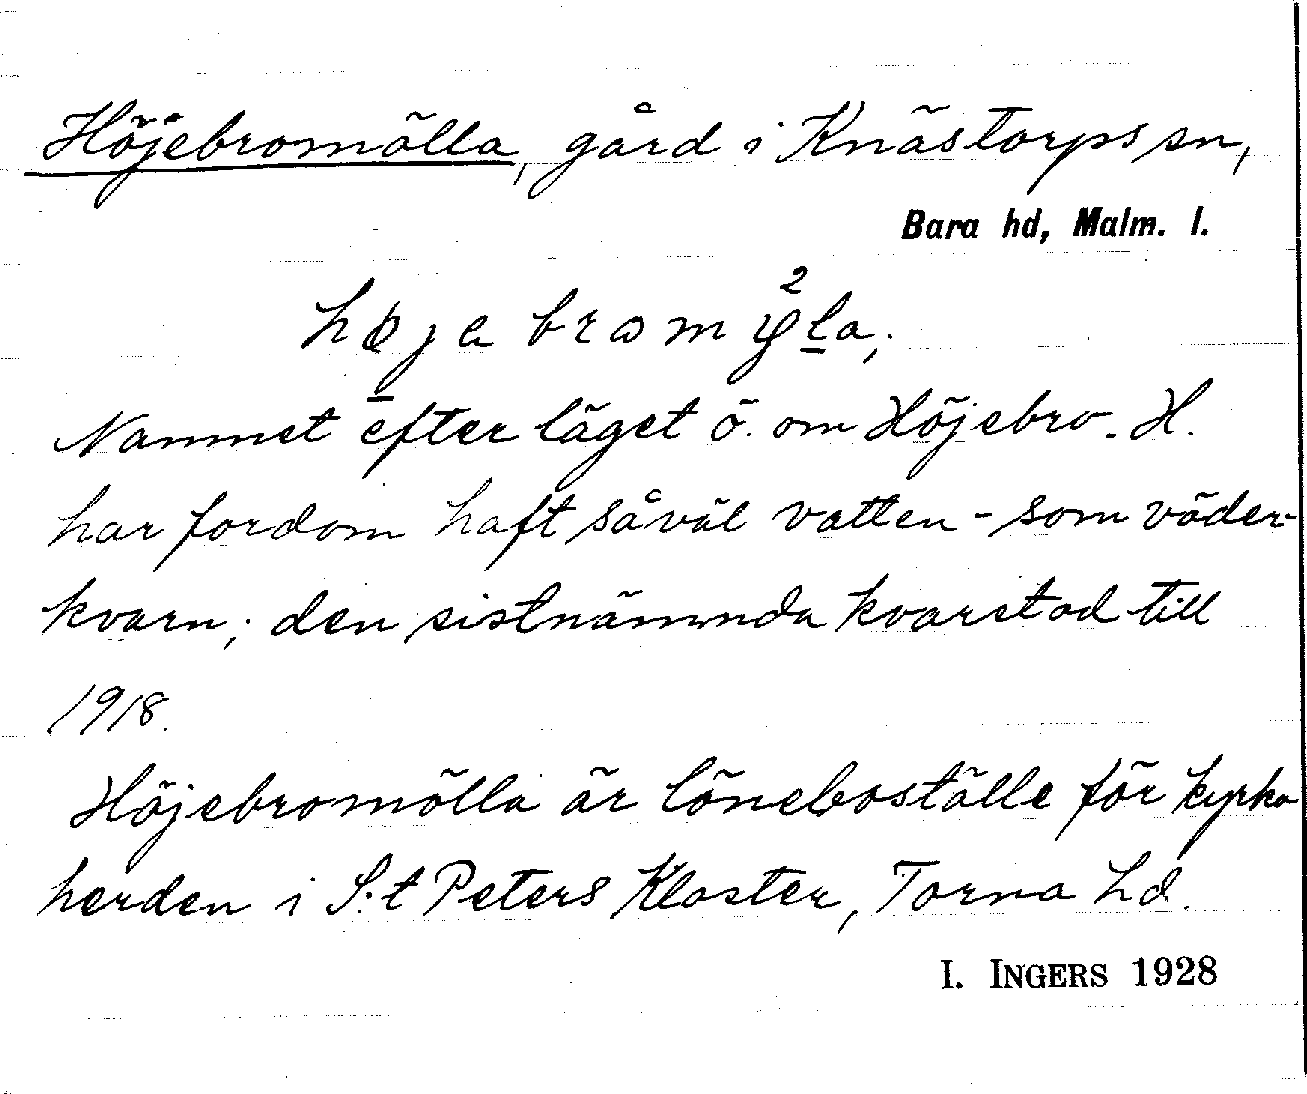 Höjebromölla, gård i Knästorps sn,
Bara hd, Malm. l.
Namnet efter läget ö. om Höjebro. H.
har fordom haft såväl vatten- som väder-
kvarn; den sistnämnda kvarstod till
1918.
Höjebromölla är löneboställe för kyrko
herden i S:t Peters Kloster, Torna hd.
I. INGERS 1928